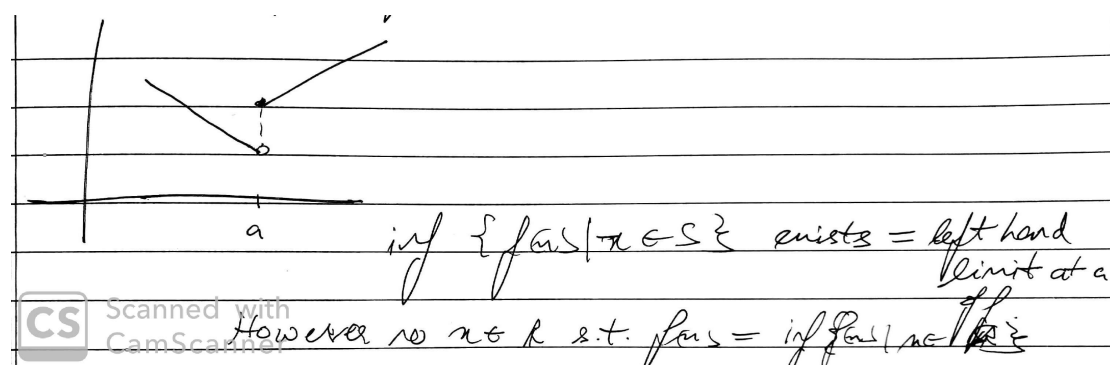 a
inf {f(x) | x ∈ S} exists = left hand
limit at a
of f
However no x ∈ R s.t. f(x) = inf {f(x) | x ∈ }
CS Scanned with
CamScanner